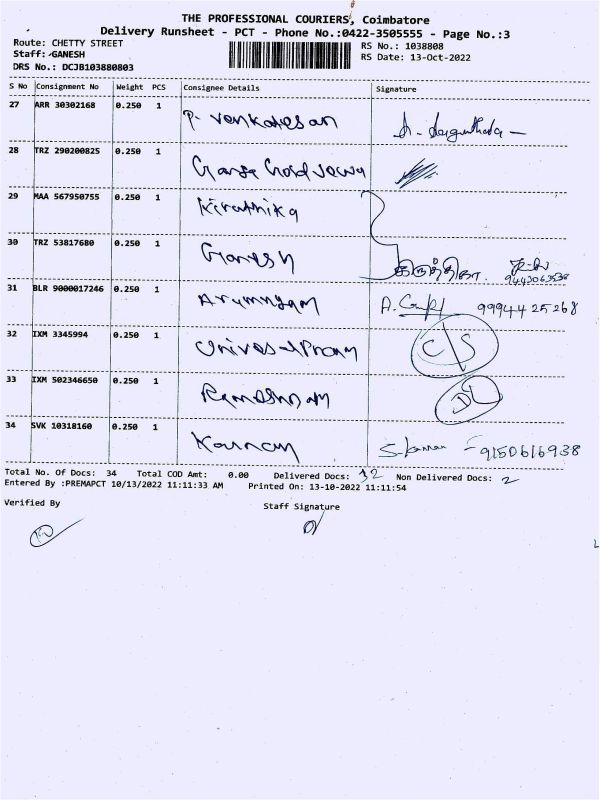 THE PROFESSIONAL COURIERS, Coimbatore
Delivery Runsheet - PCT - Phone No.:0422-3505555 - Page No.:3
Route: CHETTY STREET
RS No.: 1038808
Staff: GANESH
RS Date: 13-Oct-2022
DRS No.: DCJB103880803
S No Consignment No Weight PCS Consignee Details Signature
27 ARR 30302168 0.250 1 P. Venkatesan
28 TRZ 290200825 0.250 1
29 MAA 567950755 0.250 1 Kirathika
30 TRZ 53817680 0.250 1 Ganesh கிருத்திகா
9443063538
31 BLR 9000017246 0.250 1 Arumugam 99944 25268
32 IXM 3345994 0.250 1 C/S
33 IXM 502346650 0.250 1 DL
34 SVK 10318160 0.250 1 Kannan S. Kannan - 9150616938
Total No. Of Docs: 34 Total COD Amt: 0.00 Delivered Docs: 32 Non Delivered Docs: 2
Entered By :PREMAPCT 10/13/2022 11:11:33 AM Printed On: 13-10-2022 11:11:54
Verified By Staff Signature